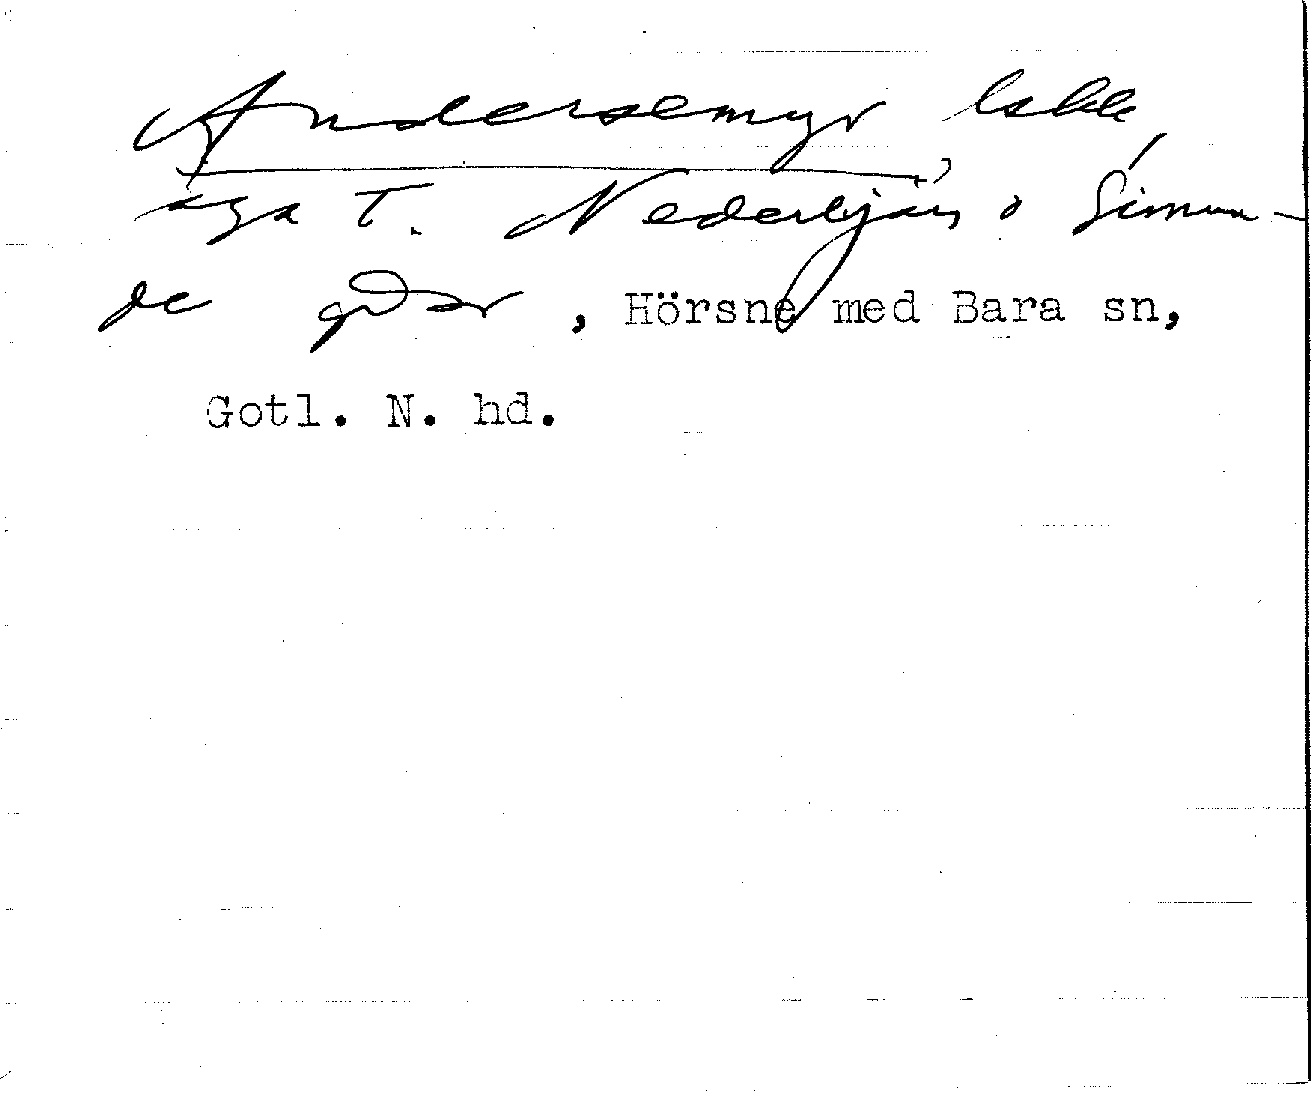 Andersemyr,
äga T. Nederbjärs o Simun-
de gdar, Hörsne med Bara sn,
Gotl. N. hd.